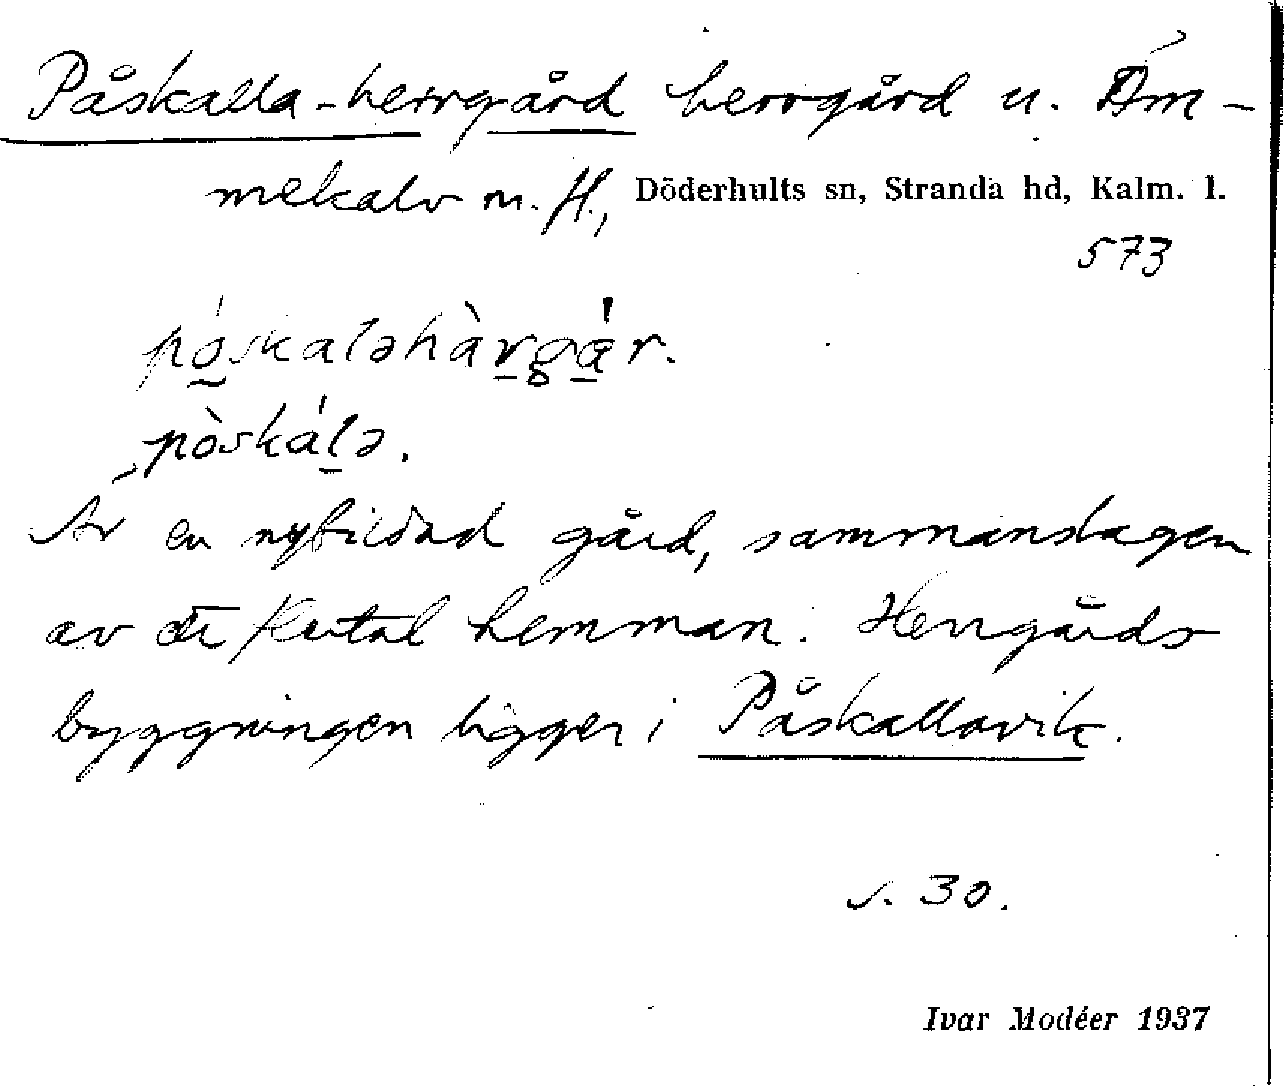 Påskalla-herrgård herrgård u. Äm-
mekalv m. fl., Döderhults sn, Stranda hd, Kalm. l.
573
póskaləhàrgár.
pòskálə.
Är en nybildad gård, sammanslagen
av hemman. Herrgårds
byggningen ligger i Påskallavik.
s. 30.
Ivar Modéer 1937